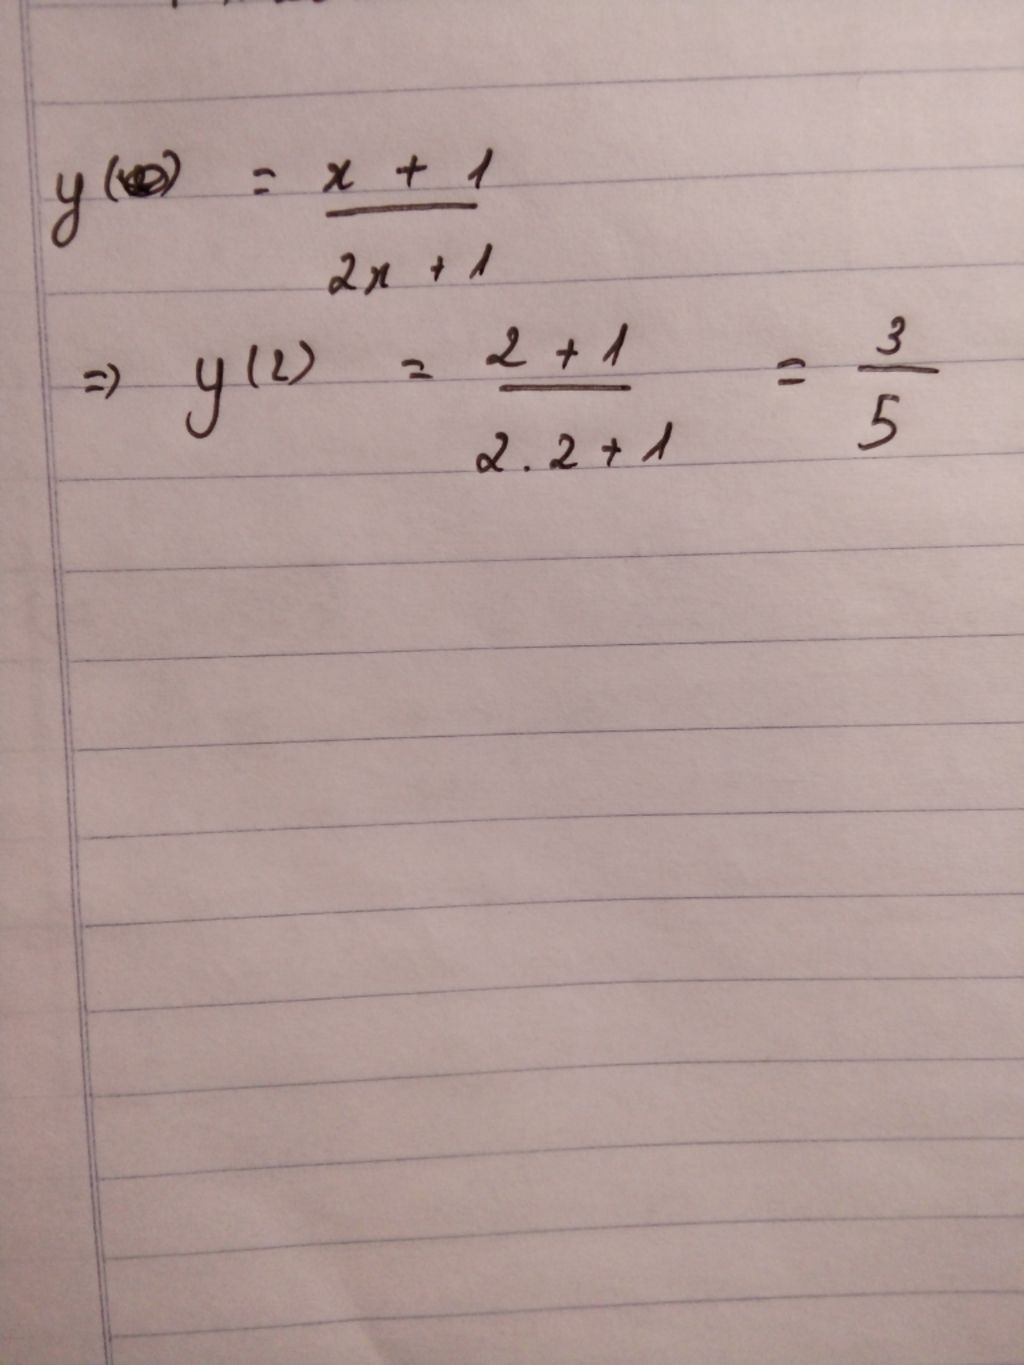 y( ) = x + 1 / 2x + 1
=> y(2) = 2 + 1 / 2 . 2 + 1 = 3 / 5